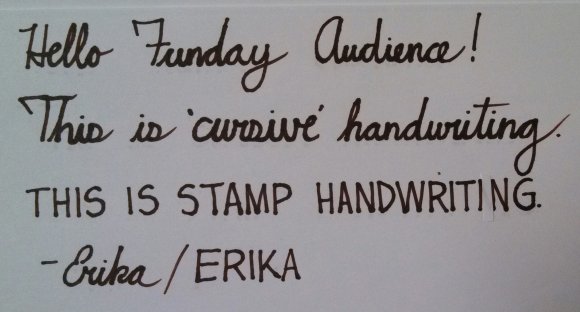 Hello Funday Audience!
This is 'cursive' handwriting.
THIS IS STAMP HANDWRITING.
- Erika / ERIKA